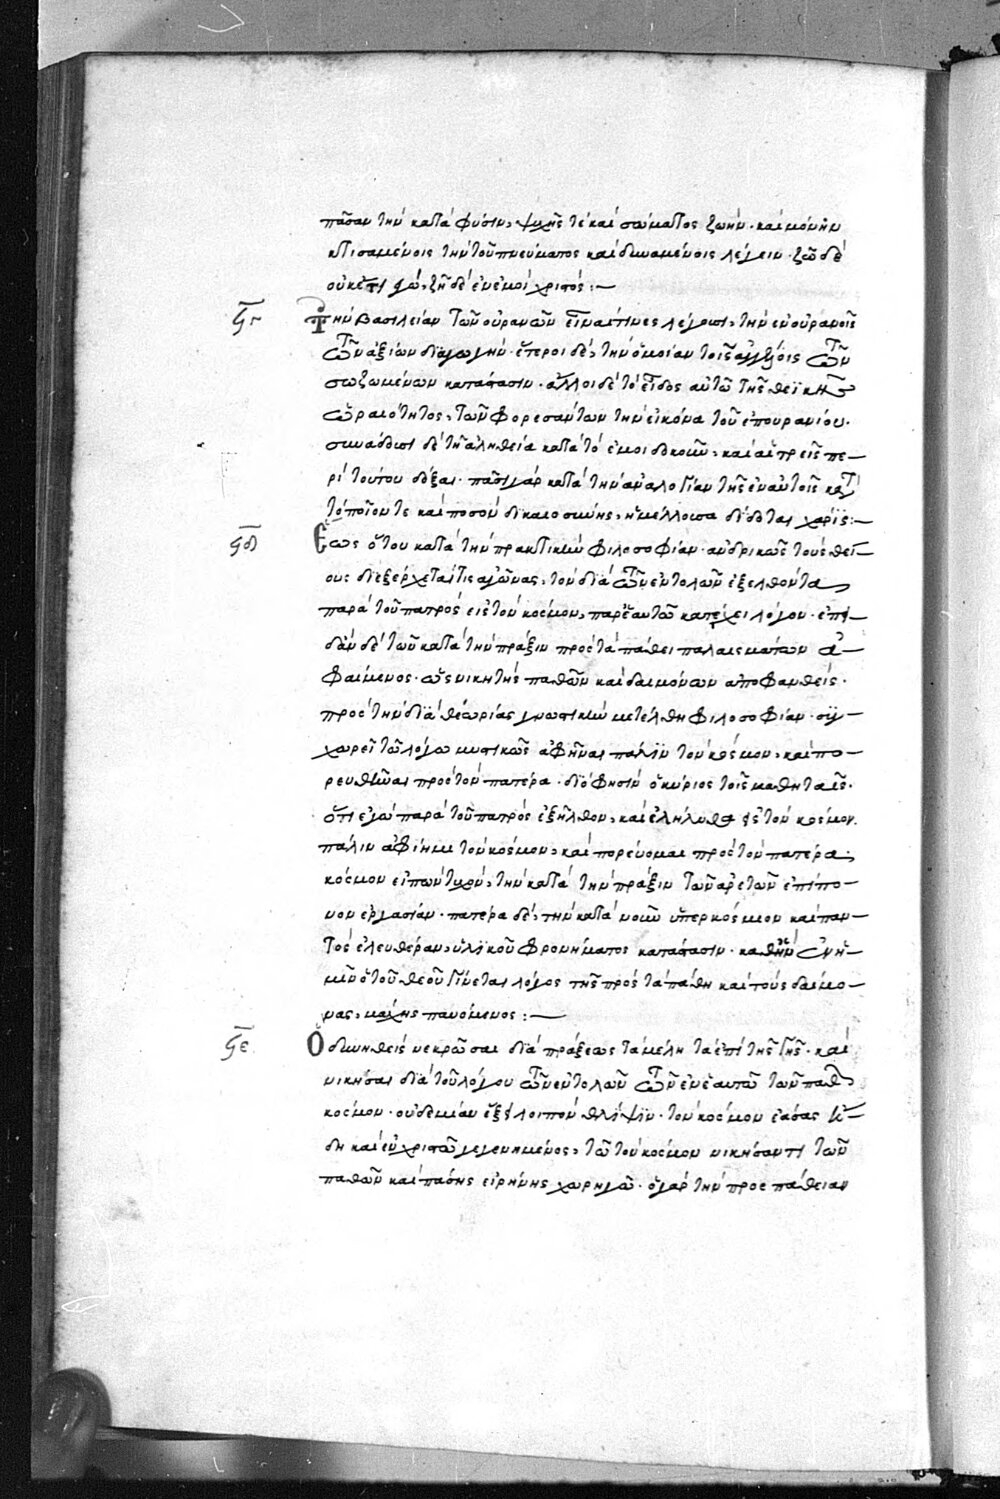 πᾶσαν τὴν κατὰ φύσιν, ψυχῆς τὲ καὶ σώματος ζωὴν· καὶ μόνην
κτισαμένοις τὴν τοῦ πνεύματος καὶ δυναμένοις λέγειν· ζῶ δὲ
οὐκέτι ἐγώ, ζῇ δὲ ἐν ἐμοὶ χριστός:—
ϟγ Τὴν βασιλείαν τῶν οὐρανῶν εἶναι τινες λέγουσι, τὴν ἐν οὐρανοῖς
τῶν ἀξίων διαγωγήν· ἕτεροι δὲ, τὴν ὁμοίαν τοῖς ἀγγέλοις τῶν
σωζομένων κατάστασιν· ἄλλοι δὲ τὸ εἶδος αὐτὸ τῆς θεϊκῆς
ὡραιότητος, τῶν φορεσάντων τὴν εἰκόνα τοῦ ἐπουρανίου·
συνάδουσι δὲ τῇ ἀληθεία κατὰ τὸ ἐμοὶ δοκοῦν, καὶ αἱ τρεῖς πε–
ρὶ τούτου δόξαι· πᾶσι γὰρ κατὰ τὴν ἀναλογίαν τῆς ἐν αὐτοῖς κατὰ
τὸ ποῖον τε καὶ ποσὸν δικαιοσύνης, ἡ μέλλουσα δίδοται χάρις:—
ϟδ Ἕως ὅτου κατὰ τὴν πρακτικὴν φιλοσοφίαν· ἀνδρικῶς τοὺς θεί–
ους διεξέρχεται τις ἀγῶνας, τὸν διὰ τῶν ἐντολῶν ἐξελθόντα
παρὰ τοῦ πατρὸς εἰς τὸν κόσμον, παρ' ἑαυτῶ κατέχει λόγον· ἐπει–
δὰν δὲ τῶν κατὰ τὴν πρᾶξιν πρὸς τὰ πάθει παλαισμάτων ἀ–
φαίμενος· ὡς νικητὴς παθῶν καὶ δαιμόνων ἀποφανθείς·
πρὸς τὴν διὰ θεωρίας γνωστικὴν μετέλθη φιλοσοφίαν· συγ–
χωρεῖ τῶ λόγω μυστικῶς ἀφῆναι πάλιν τὸν κόσμον, καὶ πο–
ρευθῆναι πρὸς τὸν πατέρα· διό φησιν ὁ κύριος τοῖς μαθηταῖς·
ὅτι ἐγὼ παρὰ τοῦ πατρὸς ἐξῆλθον, καὶ ἐλήλυθα εἰς τὸν κόσμον.
πάλιν ἀφίημι τὸν κόσμον, καὶ πορεύομαι πρὸς τὸν πατέρα·
κόσμον εἰπὼν τυχὸν, τὴν κατὰ τὴν πρᾶξιν τῶν ἀρετῶν ἐπίπο–
νον ἐργασίαν· πατέρα δὲ, τὴν κατὰ νοῦν ὑπερκόσμιον καὶ παν–
τὸς ἐλευθέραν, ὑλικοῦ φρονήματος κατάστασιν· καθ' ἣν ἐν ἡ–
μῖν ὁ τοῦ θεοῦ γίνεται λόγος τῆς πρὸς τὰ πάθη καὶ τοὺς δαίμο–
νας, μάχης παυόμενος:—
ϟε Ὁ δυνηθεὶς νεκρῶσαι διὰ πράξεως τὰ μέλη τὰ ἐπὶ τῆς γῆς· καὶ
νικῆσαι διὰ τοῦ λόγου τῶν ἐντολῶν τὸν ἐν ἑαυτῶ τῶν παθῶν
κόσμον· οὐδεμίαν ἕξει λοιπὸν θλίψιν· τὸν κόσμον ἐάσας ἤ–
δη καὶ ἐν χριστῶ γεγενημένος, τῶ τὸν κόσμον νικήσαντι τῶν
παθῶν καὶ πάσης εἰρήνης χορηγῶ· ὁ γὰρ τὴν προσπάθειαν